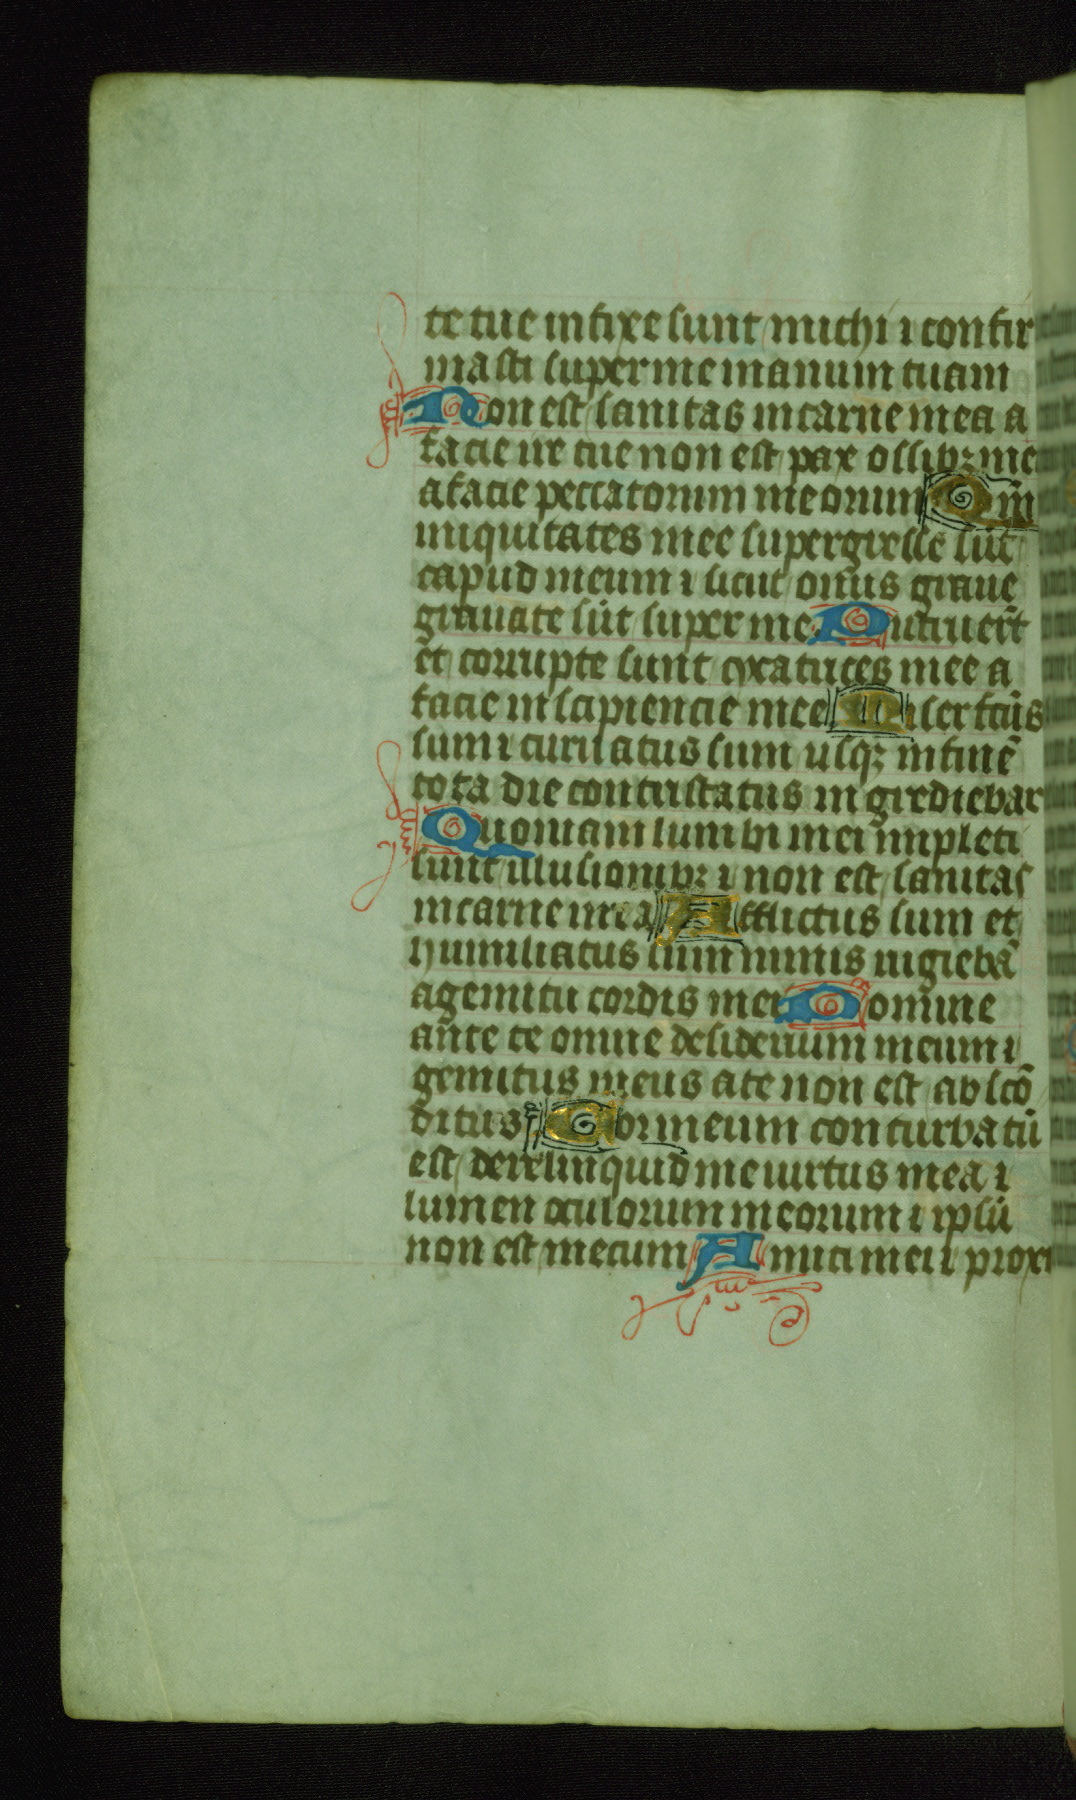 te tue infixe sunt michi ⁊ confir
masti super me manum tuam
Non est sanitas in carne mea a
facie ire tue non est pax ossibꝫ me
a facie peccatorum meorum Qm̄
iniquitates mee supergresse sūt
capud meum ⁊ sicut onus graue
grauate sūt super me Putruer̄t
et corrupte sunt cycatrices mee a
facie insipiencie mee Miser fcūs
sum ⁊ curuatus sum usqꝫ in finē
tota die contristatus ingrediebar
Quoniam lumbi mei impleti
sunt illusionibꝫ ⁊ non est sanitas
in carne mea Afflictus sum et
humiliatus sum nimis rugiebā
a gemitu cordis mei Domine
ante te omne desiderium meum ⁊
gemitus meus a te non est abscō
ditus Cor meum conturbatū
est derelinquid me uirtus mea ⁊
lumen oculorum meorum ⁊ ipsū
non est mecum Amici mei ⁊ proxi